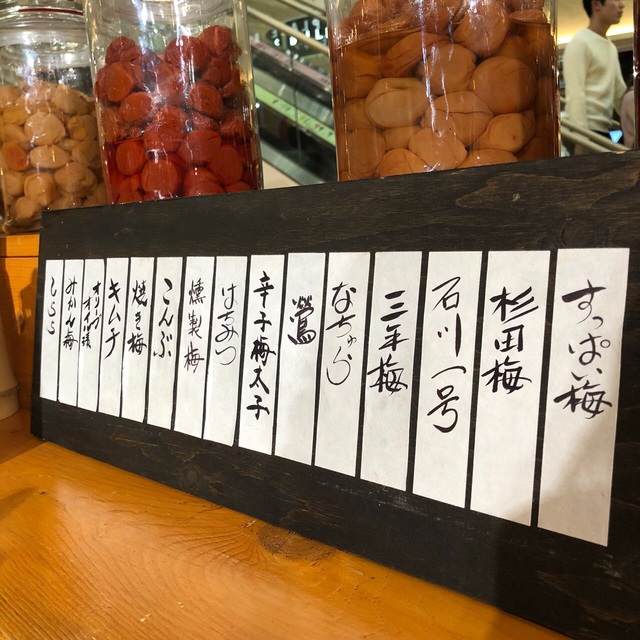 すっぱい梅
杉田梅
石川一号
三年梅
なちゅらル
鶯
辛子梅太子
はちみつ
燻製梅
こんぶ
焼き梅
キムチ
オリーブオイル漬
みかん梅
しらら